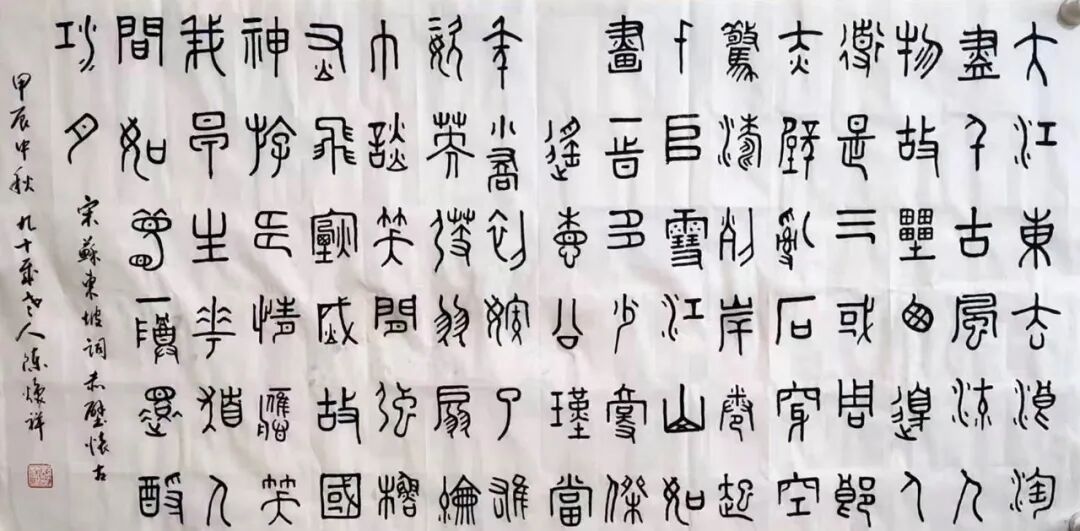 大江東去浪淘
盡千古風流人
物故壘西邊人
道是三或周郎
赤壁亂石穿空
驚濤列岸卷起
千堆雪江山如
畫一時多少豪傑
遙想公瑾當
年小喬初嫁了雄
姿英發羽扇綸
巾談笑間強櫓
灰飛煙滅故國
神游情應笑
我早生華髮人
間如夢一尊還酹
江月
宋蘇東坡詞赤壁懷古
甲辰中秋九十歲老人陳煥祥